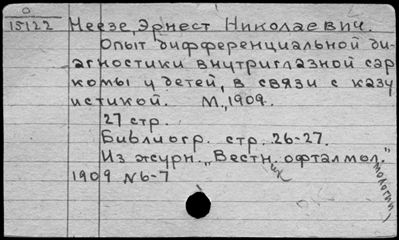 О
15122 Неезе, Эрнест Николаевич.
Опыт дифференциальной ди-
агностики внутриглазной сар
комы у детей, в связи с казу
истикой. М., 1909.
27 стр.
Библиогр. стр. 26-27.
Из журн. „Вестн. офталмол."
их
мологии
1909 №6-7